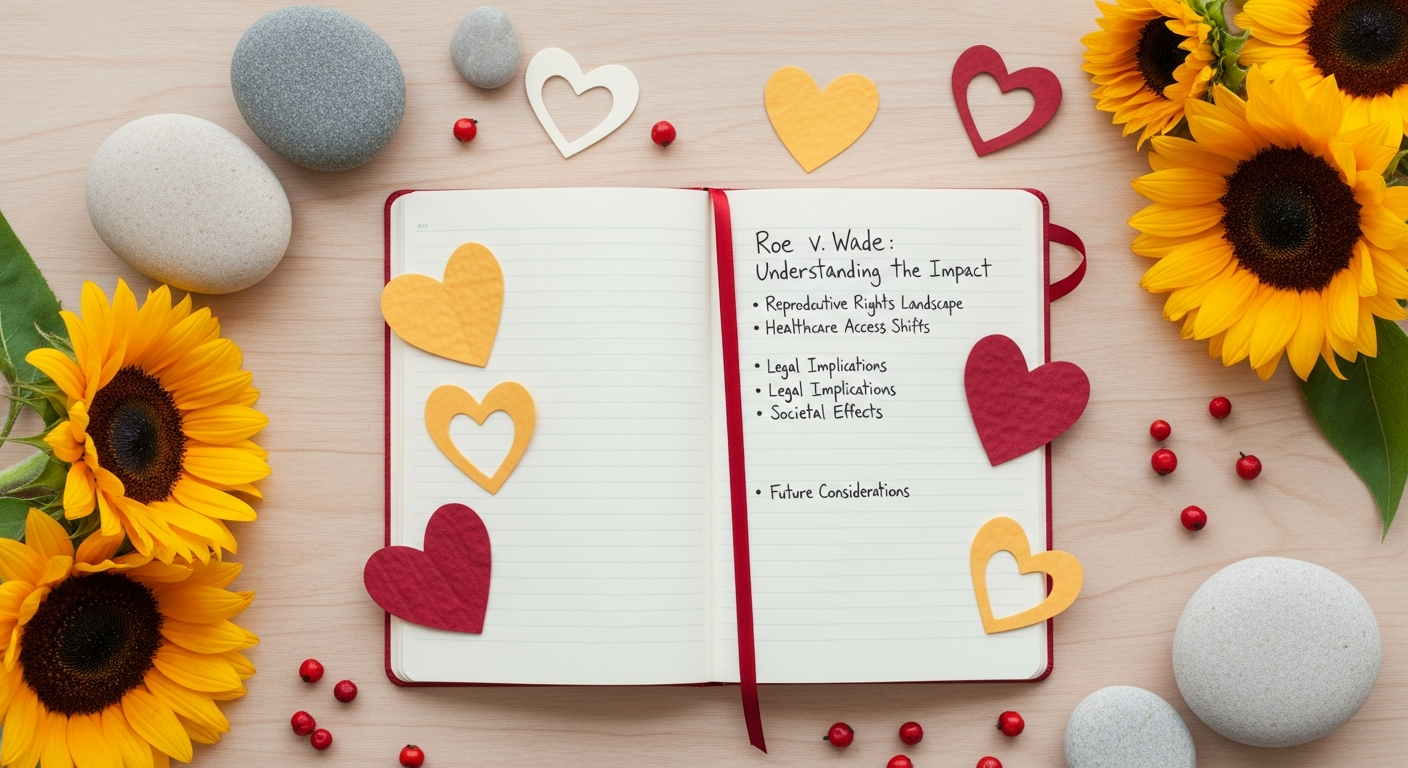 Roe v. Wade:
Understanding the Impact
• Reproductive Rights Landscape
• Healthcare Access Shifts
• Legal Implications
• Legal Implications
• Societal Effects
• Future Considerations